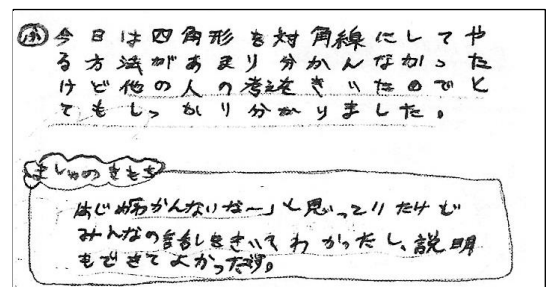 ㋫今日は四角形を対角線にしてや
る方法があまり分かんなかった
けど他の人の考えをきいたのでと
てもしっかり分かりました。
ましゅのきもち
はじめ「わかんないなー」と思っていたけど
みんなの話しをきいてわかったし、説明
もできてよかったです。